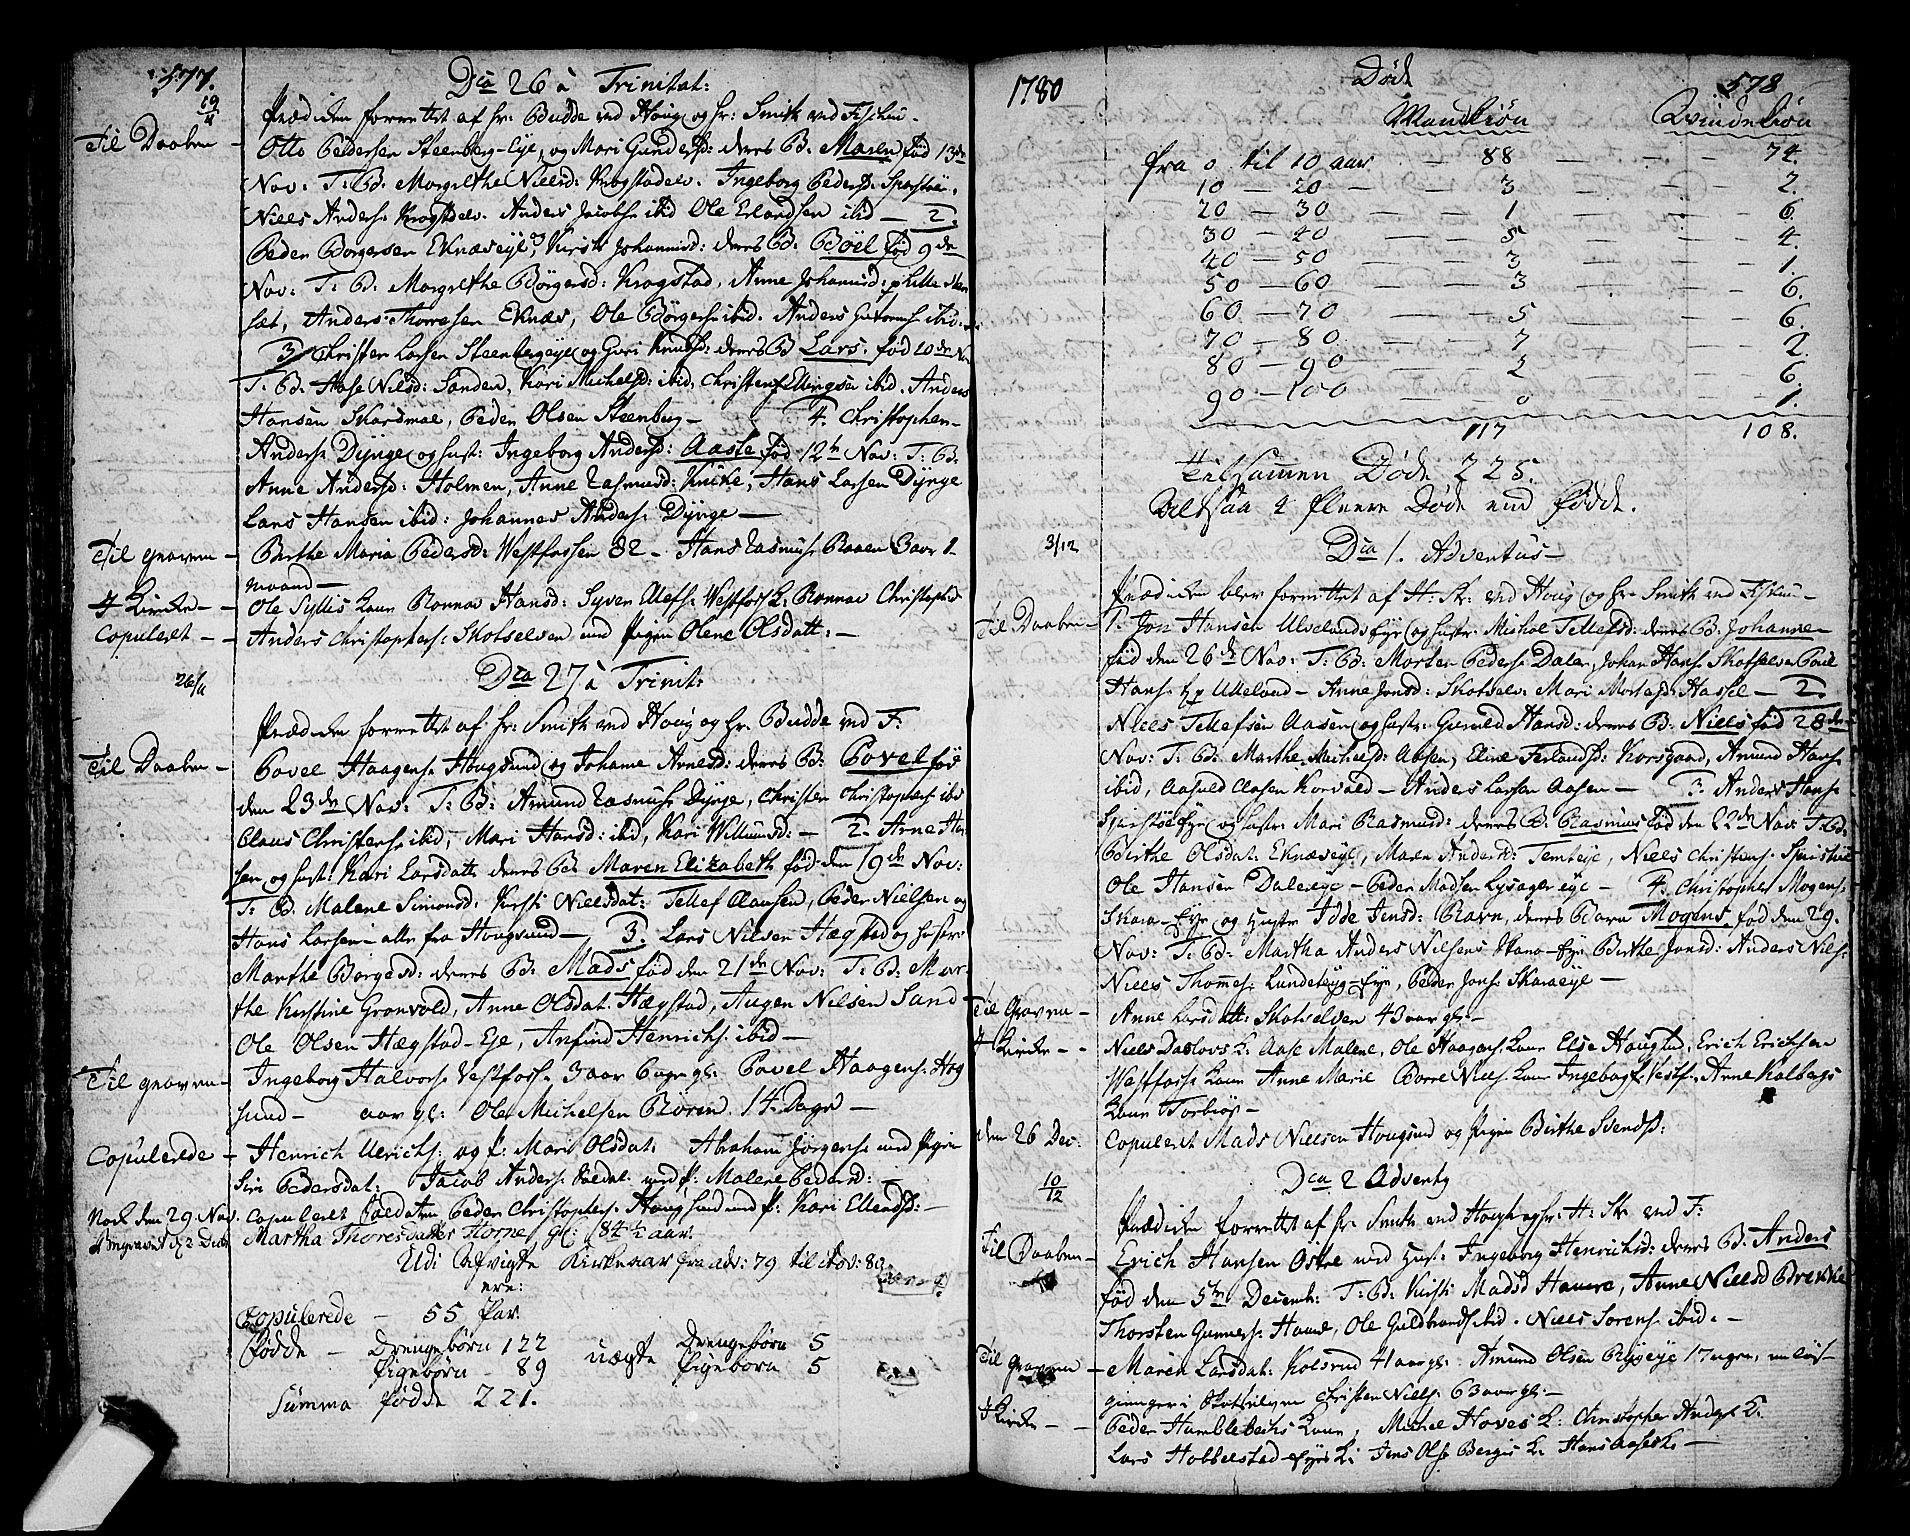 577.
Dca 26 à Trinitat:
19/11
Prædiken forrettet af hr: Budde ved Houg og hr: Smith ved Fischum -
Til Daaben -
Otto Pedersen Steenberg-Eye, og Mari Gundersd: deres B. Maren fød 13de
Nov: T: B: Margrethe Nielsd: Krogstadelv. Ingeborg Pedersd:
Niels Anders: Krogstelv. Anders Jacobs: ibid Ole Erlandsen ibid - 2.
Peder Borgersen Eknæseye og Kirsti Johannisd: deres B: Böel fød 9de
Nov: T: B: Margrethe Börgersd: Krogstad, Anne Johannisd: Lille
sæt, Anders Thoresen Eknæs, Ole Börgers: ibid. Anders Guttorms: ibid.
3 Christen Larsen Steenbergeye og Guri Knudsd: deres B Lars. fød 10de Nov
T: B: Aase Nilsd: Sanden, Kari Michelsd: ibid, Christen Ellingsen ibid. Anders
Hansen Skardmoe, Peder Olsen Steenberg - 4. Christopher
Anders: Dÿnge og hust: Ingeborg Andersd: Aaste fød 12te Nov: T: B:
Anne Andersd: Holmen, Anne Rasmusd: Knive, Hans Larsen Dÿnge
Lars Hansen ibid: Johannes Anders: Dÿnge -
Til graven -
Birthe Maria Pedersd: Vestfossen 82 - Hans Rasmus: Raaen 3 aar 1
maaned -
I Kircke -
Ole Syllis Kaan Ronnov Hansd: Syver Olefs: Vestfoss K: Ronnov Christophsd:
Copuleret -
Anders Christophers: Skotselven med Pigen Olene Olsdatt: -
Dca 27 à Trinit:
26/11
Prædiken forrettet af hr: Smith ved Houg og hr: Budde ved F:
Til Daaben -
Povel Haagens: Hougsund og Johanne Arnesd: deres B: Povel fød
den 23de Nov: T: B: Amund Rasmus: Dÿnge, Christen Christophers: ibid
Claus Christens: ibid, Mari Hansd: ibid, Kari Willumsd: - 2. Arne Han
sen og hust: Kari Larsdatt: deres B: Maren Elizabeth fød den 19de Nov:
T: B: Malene Simonsd: Kirsti Nielsdat: Tellef Clausen, Peder Nielsen og
Hans Larsen - alle fra Hougsund - 3. Lars Nielsen Hægstad og hustr:
Marthe Borgesd: deres B: Mads fød den 21de Nov: T: B: Mar
the Kirstine Gronvold, Anne Olsdat: Hægstad, Augen Nilsen Sand
Ole Olsen Hægstad-Eje, Anfind Henrichs: ibid -
Til graven -
Ingeborg Halvors: Vestfoss: 3 aar 6 uger gl: Povel Haagens: Hog
sund - aar gl: Ole Michelsen Bören 14 Dage -
Copulerede -
Henrich Ulrichs: og P: Mari Olsdat: Abraham Jörgens: med Pigen
Siri Pedersdat: Jacob Anders: Soldat med P: Malene Pedersd: -
Nock den 29 Nov.
copuleret Soldaten Peder Christophers: Hougsund med P: Kari Ellensd: -
Martha Thoresdatter Horne gl: 84 1/2 aar.
Udi Afvigte Kirkeaar fra adv: 79 til Nov: 80
ere:
Copulerede - 55 Par.
Fødde - Drengebörn 122 uægte Drengebörn 5
Pigebörn - 89 Pigebörn 5
Summa fødde 221.
1780
Døde
578
Mandkiön Qvindekiön
fra 0 til 10 aar - 88 - 74.
10 - 20 - 3 - 2.
20 - 30 - 1 - 6.
30 - 40 - 5 - 4.
40 - 50 - 3 - 1.
50 - 60 - 3 - 6.
60 - 70 - 5 - 6.
70 - 80 - 7 - 2.
80 - 90 - 2 - 6.
90 - 100 - 0 - 1.
117 108.
tilsamen Døde 225.
Altsaa 4 fleere Døde end fødde.
Dca 1. Adventus -
3/12
Prædiken blev forrettet af H: Str: ved Houg og hr: Smith ved Fiskum -
Til Daaben -
1. Jon Hansen Ulvelands Eye og hustr: Michol Tellefsd: deres B: Johanne
fød den 26de Nov: T: B: Morten Peders: Daler, Johan Hans: Skotselven Poul
Hans: Ulleland - Anne Jonsd: Skotselv: Mari Mortensd: Hassel - 2.
Niels Tellefsen Aasen og hustr: Gunild Hansd: deres B: Niels fød 28de
Nov: T: B: Marthe Michelsd: Aasen, Eline Terlandsd: Korsgaard, Amund Hans:
ibid, Aasuld Olasen Korvald - Anders Larsen Aasen - 3. Anders Hans:
Eye og hustr: Mari Rasmusd: deres B: Rasmus fød den 22de Nov: T: B:
Birthe Olsdat: Eknæseye, Maren Andersd: Temteye, Niels Christens:
Ole Hansen Daleeye - Peder Madsen Lysager eye - 4. Christopher Mogens:
Skara-Eye og Hustr: Idde Jensd: Ravn, deres Barn Mogens fød den 29.
Nov: T: B: Martha Anders Nilsens Skara-Eye Birthe Jonsd: Anders Nils:
Niels Thomes: Lundebyg-Eye, Peder Jons: Skaraeye -
Til Graven -
Anne Larsdatt: Skotselven 43 aar gl: -
I Kircke -
Niels Daslovs K: Aase Malene, Ole Haagens: Kaan Else Hougsud, Erich Erichsen
Westfoss: Kaan Anne Marie Borre Niels: Kaan Ingeborg Vestf: Arne Kolbergs
Kaan Torbiør -
den 26 Dec:
Copuleret Mads Nielsen Hougsund og Pigen Birthe Svendsd:
Dca 2 Adventg
10/12
Prædiken forrettet af hr: Smith ved Hough og hr: H: Str ved F:
Til Daaben -
Erich Hansen Östre med Hust: Ingeborg Henrichsd: deres B: Anders
fød den 5te Decemb: T: B: Kirsti Madsd Haure, Anne Nielsd Brekke
Thorsten Gunners: Haure, Ole Guldbrands: ibid. Niels Sorens: ibid. -
Til graven -
Maren Larsdat: Kolsrud 41 aar gl: Amund Olsen Ryseye 17 uger,
i Skotselven Christen Niels: 63 aar gl: -
I Kircke -
Peder Hamblebechs Kaan, Michel Hoves K: Christopher Anders K:
Lars Hobbelstad-Eyes K: Jens Ols: Berges K: Hans Aases K: -